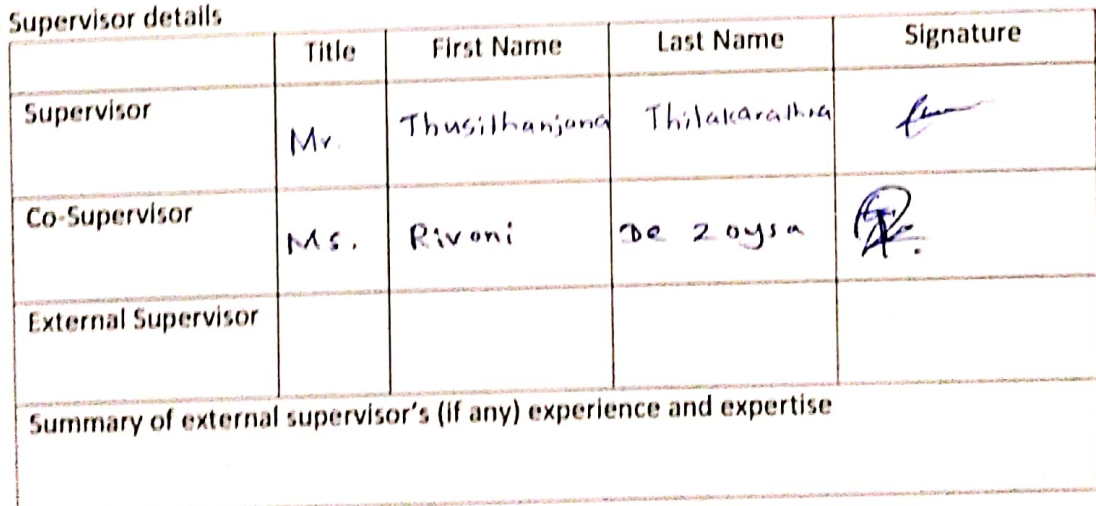 Supervisor details
Title First Name Last Name Signature
Supervisor Mr. Thusithanjana Thilakarathna
Co-Supervisor Ms. Rivoni De Zoysa
External Supervisor
Summary of external supervisor's (if any) experience and expertise